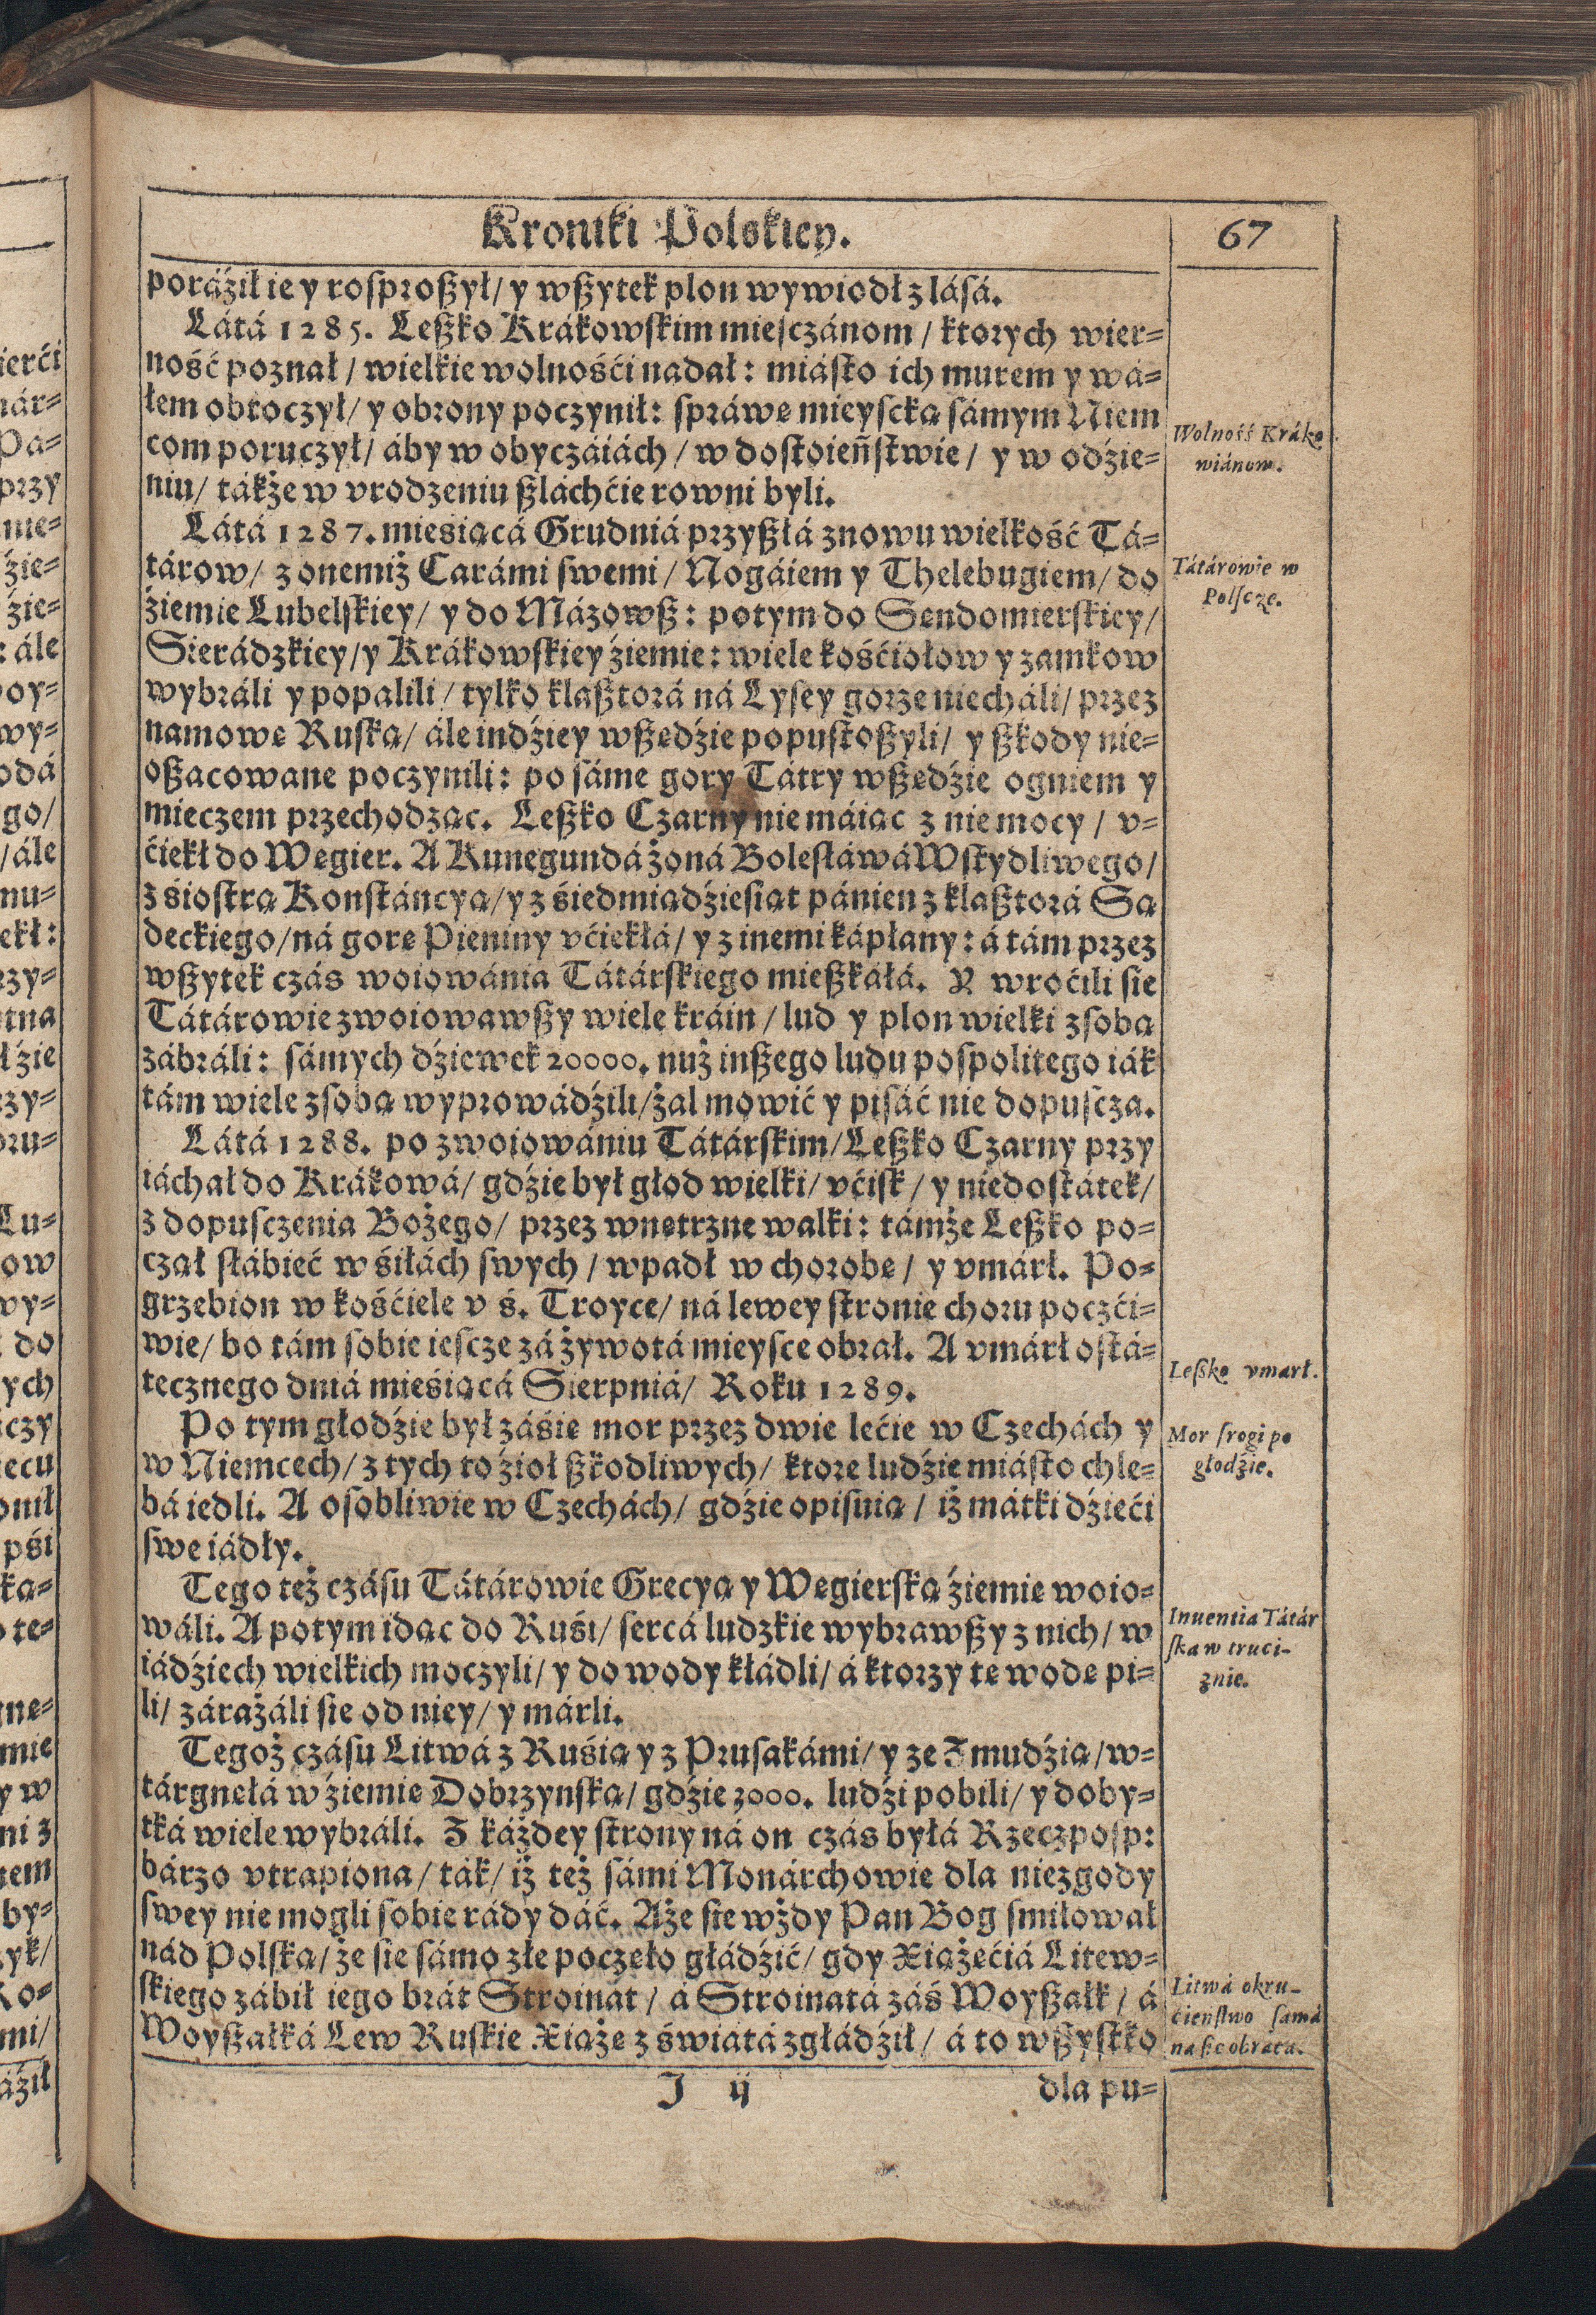 Kroniki Polskiey.
67
poráźił ie y rosproßył/ y wßytek plon wywiodł z lásá.
Látá 1285. Leßko Krákowskim miesczánom / ktorych wier=
ność poznał / wielkie wolnośći nadał: miásto ich murem y wá=
łem obtoczył/ y obrony poczynił: spráwę mieyscką sámym Niem
com poruczył/ áby w obyczáiách / w dostoieństwie / y w odźie=
niu/ tákże w vrodzeniu ßláchćie rowni byli.
Wolność Kráko
wiánom.
Látá 1287. mieśiącá Grudniá przyßłá znowu wielkość Tá=
tárow/ z onemiż Carámi swemi / Nogáiem y Thelebugiem/ do
źiemie Lubelskiey/ y do Mázowß: potym do Sendomierskiey/
Sierádzkiey/ y Krákowskiey źiemie: wiele kośćiołow y zamkow
wybráli y popalili / tylko klaßtorá ná Lysey gorze niecháli/ przez
namowę Ruską/ ále indźiey wßędźie popustoßyli/ y ßkody nie=
oßácowane poczynili: po sáme gory Tátry wßędźie ogniem y
mieczem przechodząc. Leßko Czarny nie máiąc z nie mocy / v=
ćiekł do Węgier. A Kunegundá żoná Bolesłáwá Wstydliwego/
z śiostrą Konstáncyą/ y z śiedmiądźiesiąt pánien z klaßtorá Są
deckiego/ ná gorę Pieniny vćiekłá/ y z inemi kápłany: á tám przez
wßytek czás woiowánia Tátárskiego mießkáłá. Y wroćili się
Tátárowie zwoiowawßy wiele kráin / lud y plon wielki z sobą
zábráli: sámych dźiewek 20000. nuż inßego ludu pospolitego iák
tám wiele z sobą wyprowádźili/ żal mowić y pisáć nie dopuscza.
Tátárowie w
Polscze.
Látá 1288. po zwoiowániu Tátárskim/ Leßko Czarny przy
iáchał do Krákowá/ gdźie był głod wielki/ vćisk / y niedostátek/
z dopusczenia Bożego/ przez wnętrzne walki: támże Leßko po=
czął słábieć w śiłách swych / wpadł w chorobę / y vmárł. Po=
grzebion w kośćiele v ś. Troyce/ ná lewey stronie choru poczći=
wie/ bo tám sobie iescze zá żywotá mieysce obrał. A vmárł ostá=
tecznego dniá mieśiącá Sierpniá/ Roku 1289.
Leßko vmarł.
Po tym głodźie był záśię mor przez dwie lećie w Czechách y
w Niemcech/ z tych to źioł ßkodliwych/ ktore ludźie miásto chle=
bá iedli. A osobliwie w Czechách/ gdźie opisuią / iż mátki dźieći
swe iádły.
Mor srogi po
głodźie.
Tego też czásu Tátárowie Grecyą y Węgierską źiemię woio=
wáli. A potym idąc do Ruśi/ sercá ludzkie wybrawßy z nich/ w
iádźiech wielkich moczyli/ y do wody kłádli/ á ktorzy tę wodę pi=
li/ zárażáli się od niey/ y márli.
Inuentia Tátár
ska w truci-
znie.
Tegoż czásu Litwá z Ruśią y z Prusakámi/ y ze Zmudźią/ w=
tárgnęłá w źiemię Dobrzynską/ gdźie 3000. ludźi pobili/ y doby=
tká wiele wybráli. Z káżdey strony ná on czás byłá Rzeczposp:
bárzo vtrapiona/ ták/ iż też sámi Monárchowie dla niezgody
swey nie mogli sobie rády dáć. Aże się wżdy Pan Bog smiłował
nád Polską/ że się sámo złe poczęło głádźić/ gdy Xiążęćiá Litew=
skiego zábił iego brát Stroinat / á Stroinatá záś Woyßałk / á
Woyßałká Lew Ruskie Xiążę z światá zgłádźił / á to wßystko
Litwá okru-
ćieństwo samá
na się obraca.
I ij
dla pu=